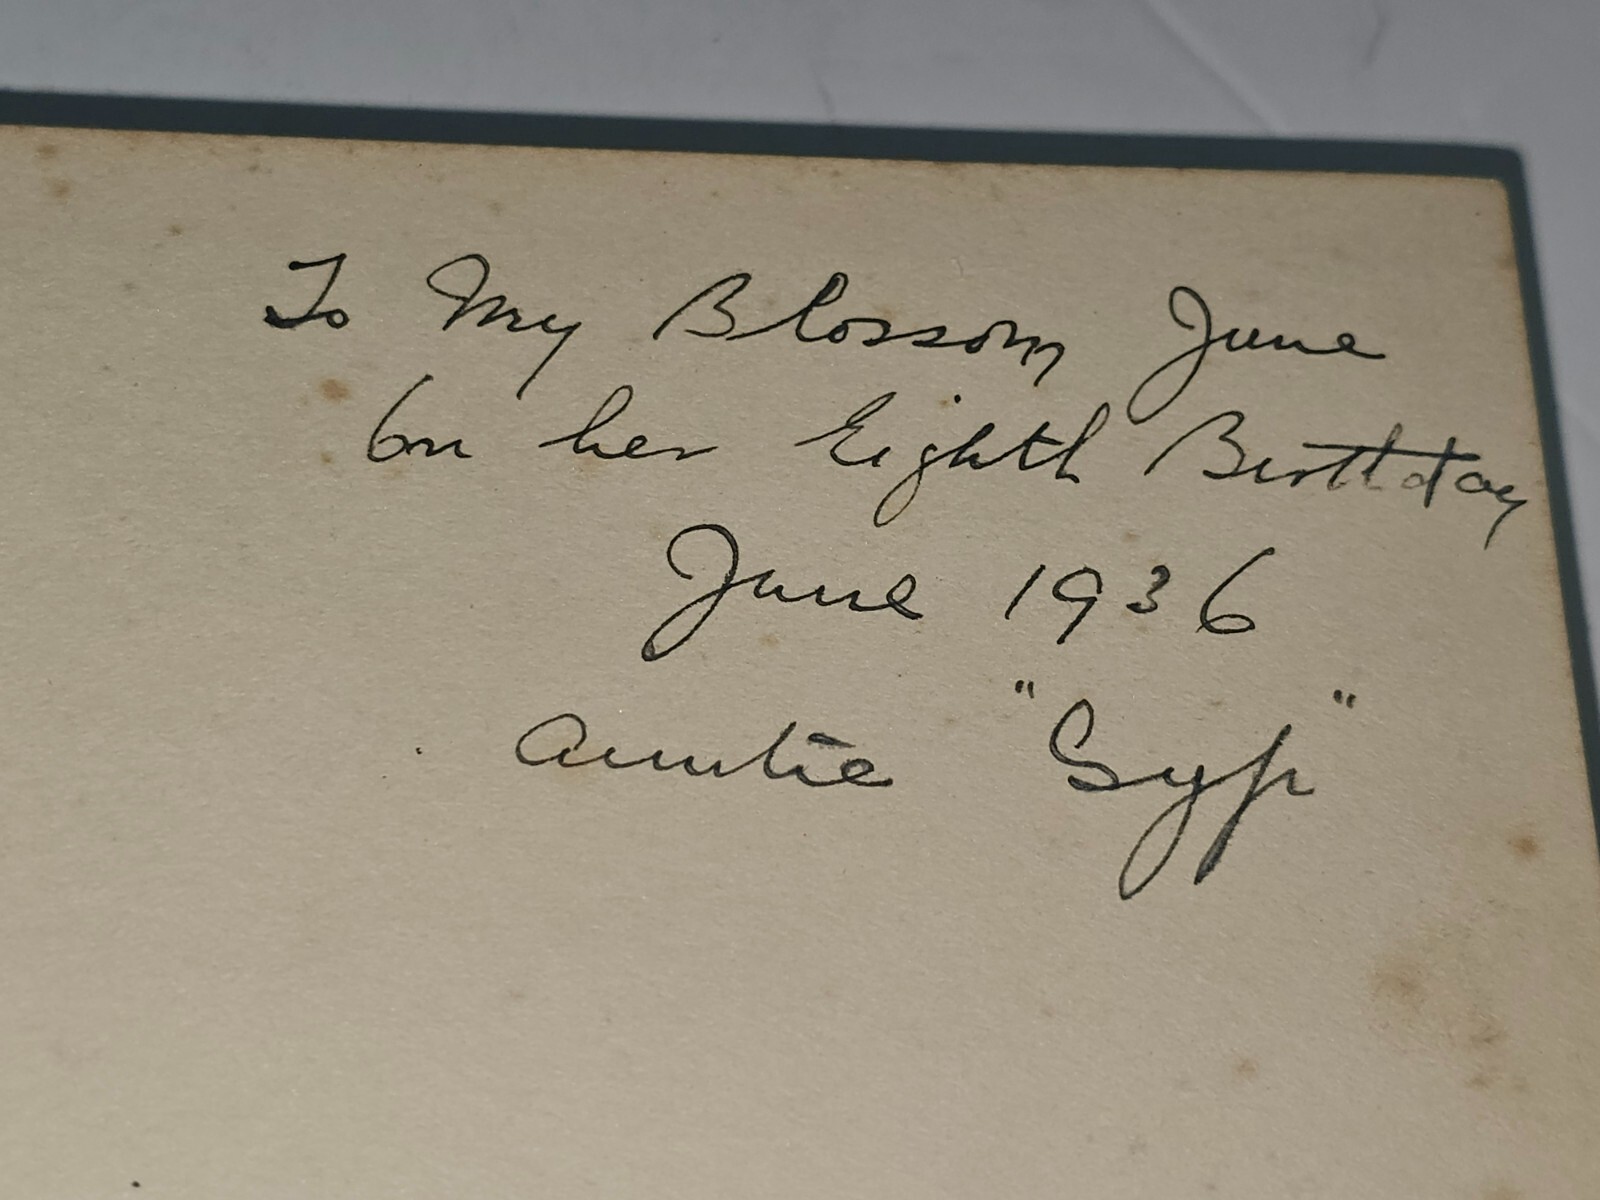 To My Blossom June
On her Eighth Birthday
June 1936
Auntie "Gyp"